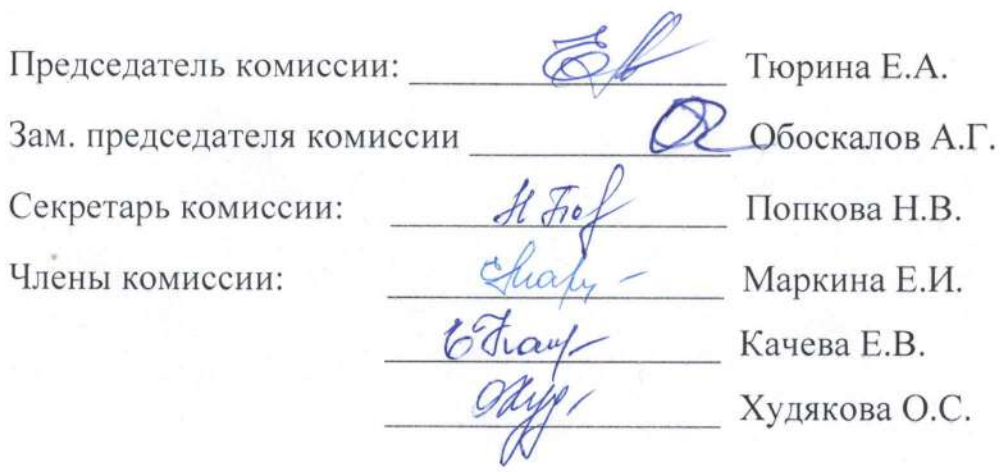 Председатель комиссии: Тюрина Е.А.
Зам. председателя комиссии Обоскалов А.Г.
Секретарь комиссии: Попкова Н.В.
Члены комиссии: Маркина Е.И.
Качева Е.В.
Худякова О.С.